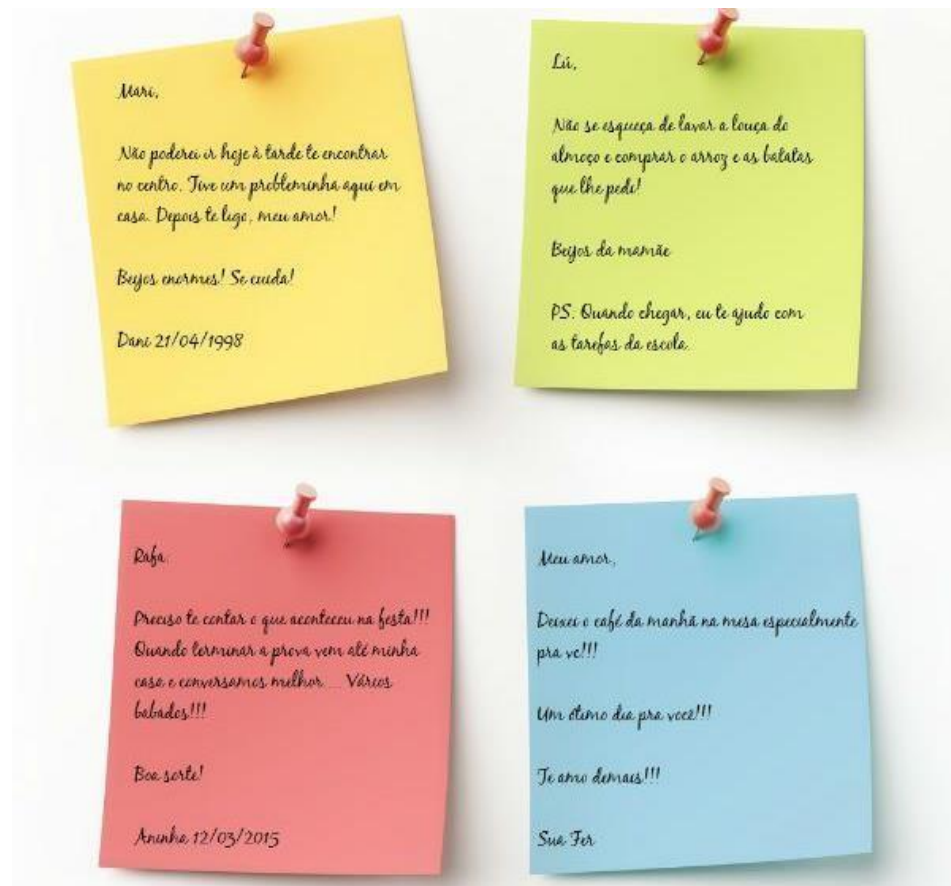 Mari,
Não poderei ir hoje à tarde te encontrar
no centro. Tive um probleminha aqui em
casa. Depois te ligo, meu amor!
Beijos enormes! Se cuida!
Dani 21/04/1998
Lú,
Não se esqueça de lavar a louça do
almoço e comprar o arroz e as batatas
que lhe pedi!
Beijos da mamãe
PS. Quando chegar, eu te ajudo com
as tarefas da escola.
Rafa.
Preciso te contar o que aconteceu na festa!!!
Quando terminar a prova vem até minha
casa e conversamos melhor.... Vários
babados!!!
Boa sorte!
Aninha 12/03/2015
Meu amor,
Deixei o café da manhã na mesa especialmente
pra vc!!!
Um ótimo dia pra você!!!
Te amo demais!!!
Sua Fer